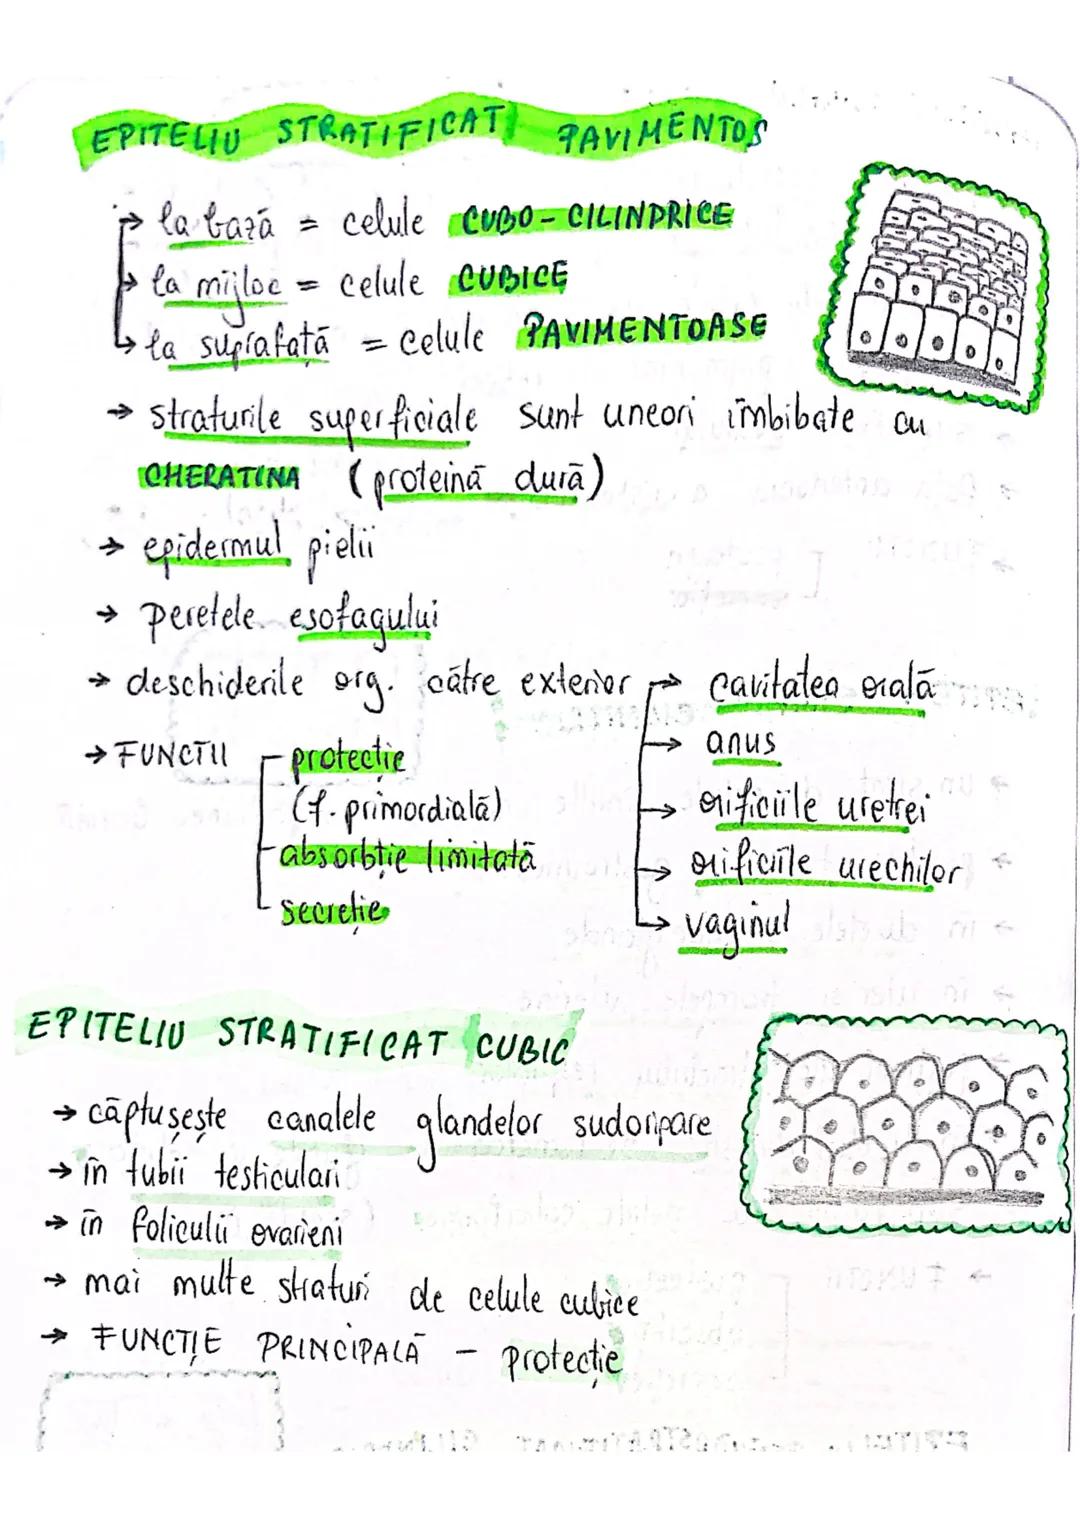 EPITELIU STRATIFICAT PAVIMENTOS
→ la bază = celule CUBO-CILINDRICE
→ la mijloc = celule CUBICE
→ la suprafață = celule PAVIMENTOASE
→ straturile superficiale sunt uneori îmbibate cu
CHERATINA (proteină dură)
→ epidermul pielii
→ peretele esofagului
→ deschiderile org. către exterior → cavitatea orală
→ anus
→ orificiile uretrei
→ orificiile urechilor
→ vaginul
→ FUNCȚII - protecție
(f. primordială)
- absorbție limitată
- secreție
EPITELIU STRATIFICAT CUBIC
→ căptușește canalele glandelor sudoripare
→ în tubii testiculari
→ în foliculii ovarieni
→ mai multe straturi de celule cubice
→ FUNCȚIE PRINCIPALĂ - protecție